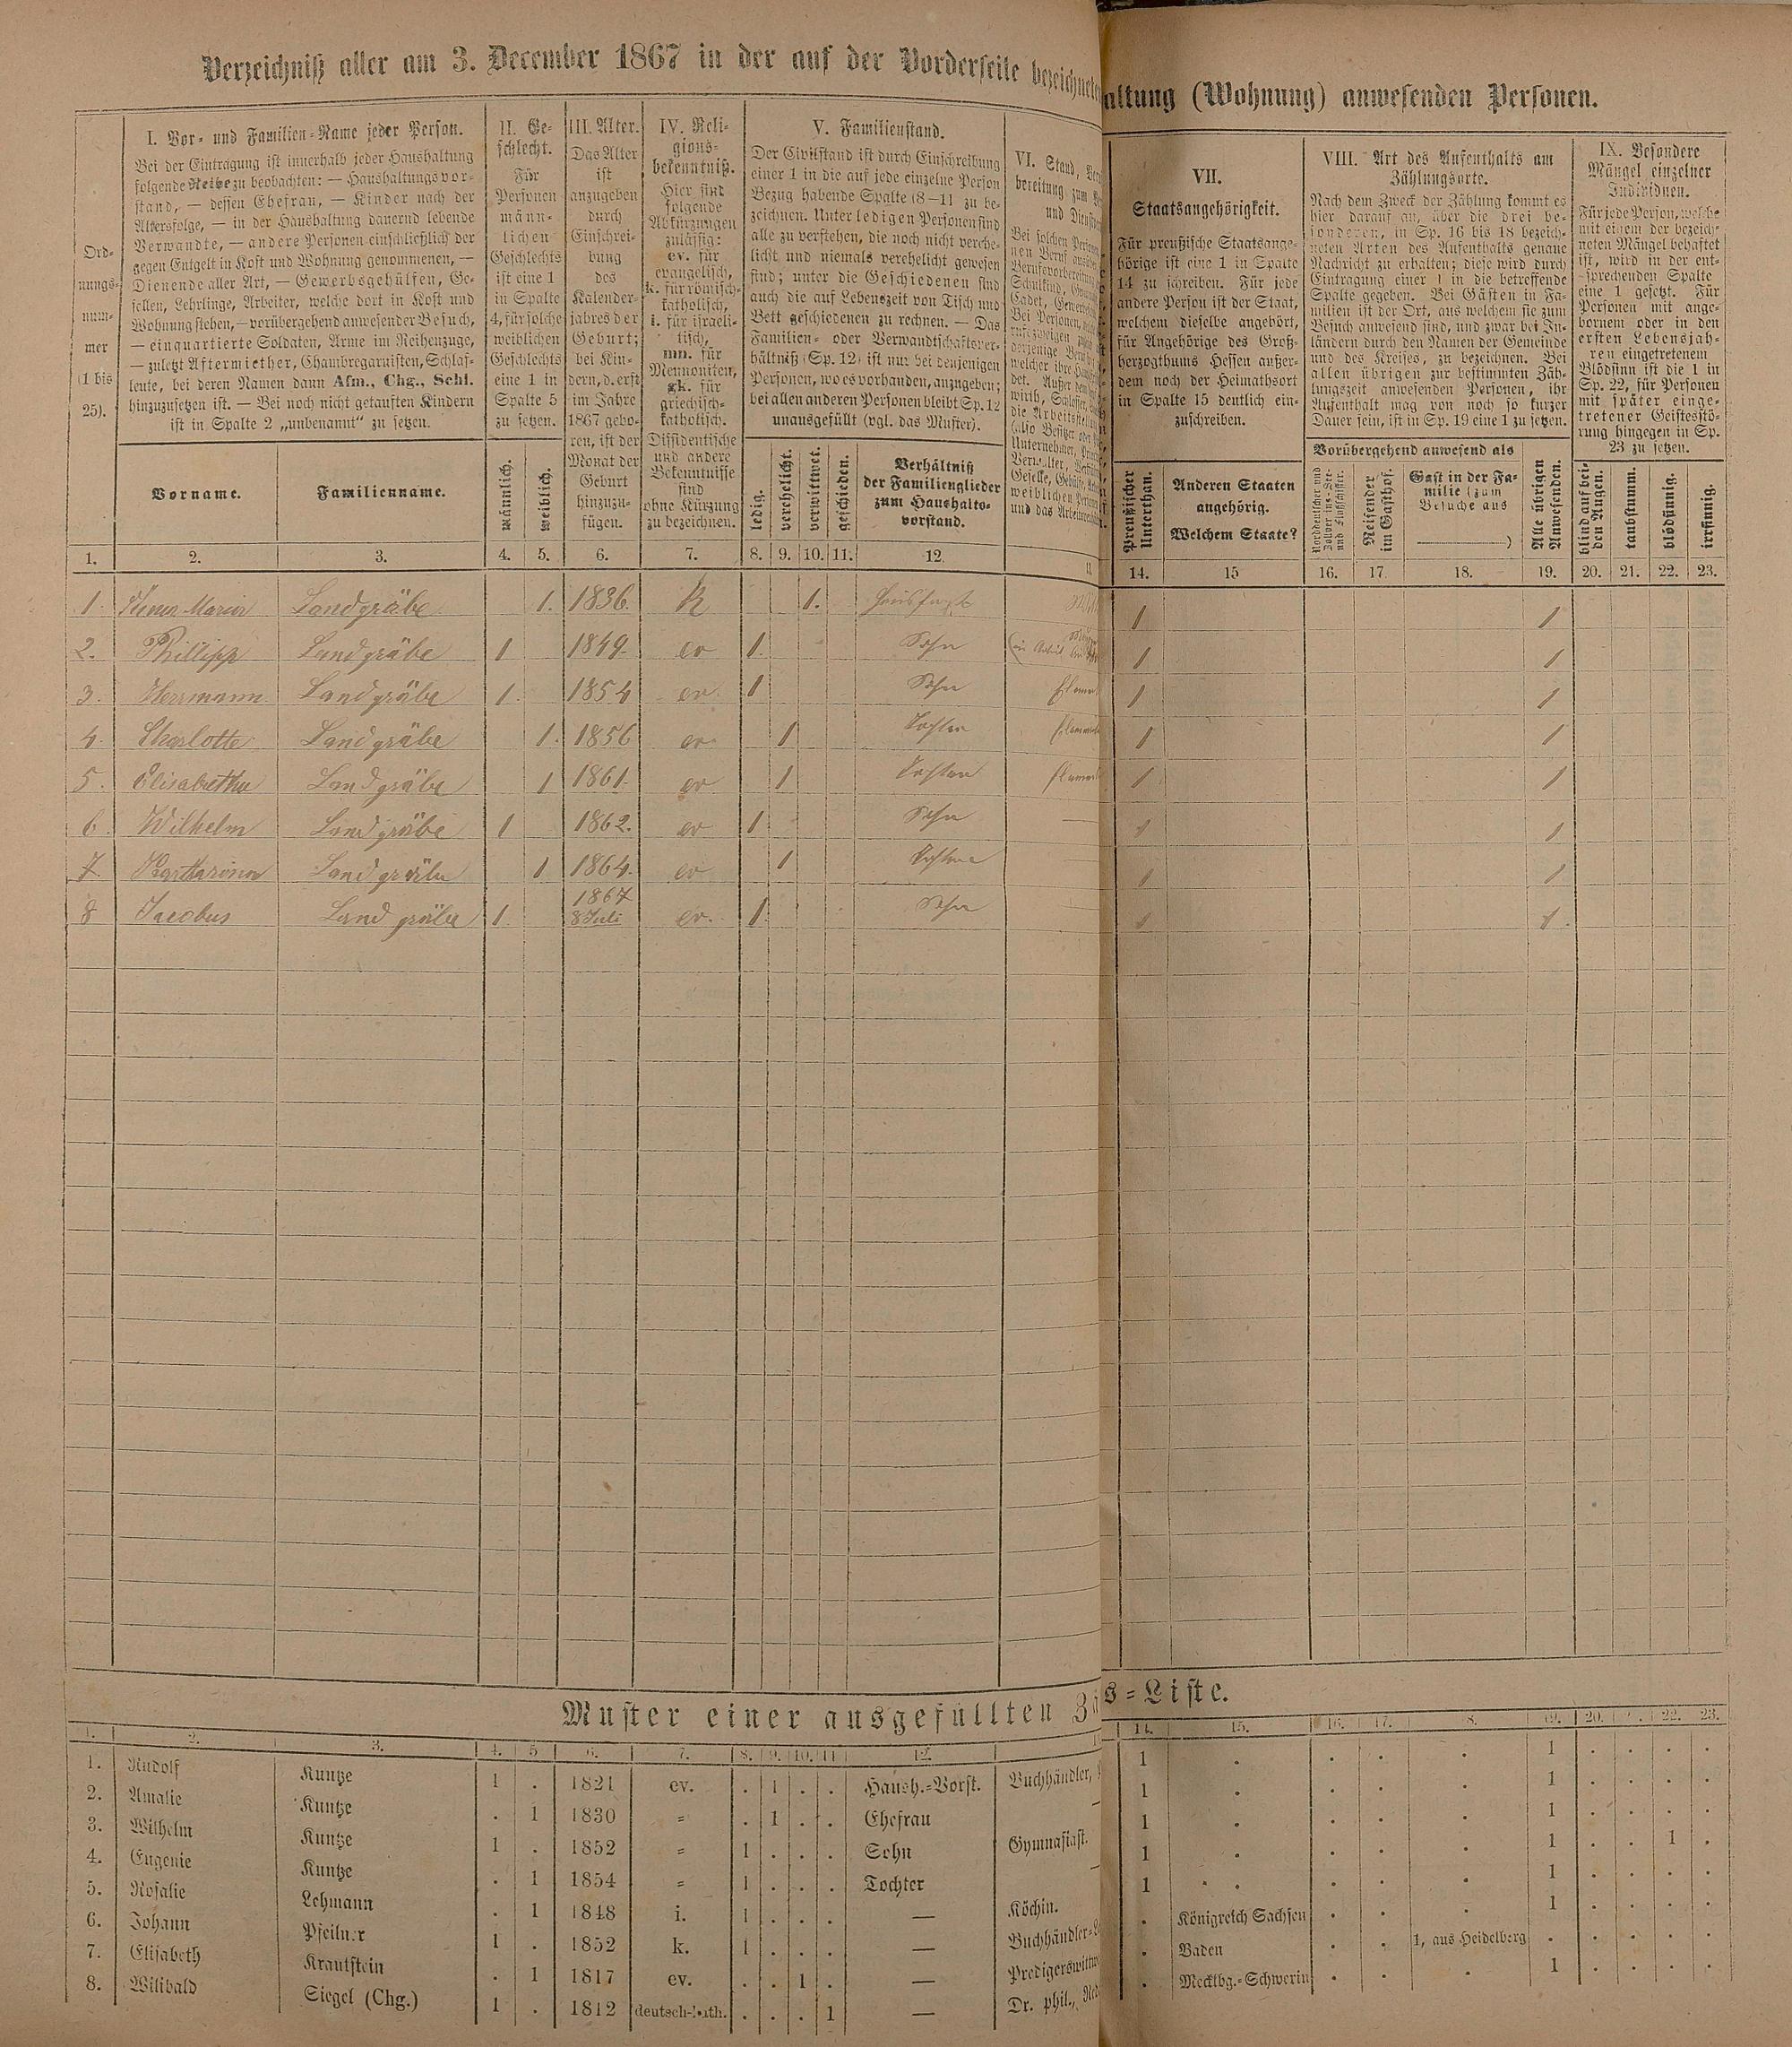 Verzeichniß aller am 3. December 1867 in der auf der Vorderseite bezeichneten
altung (Wohnung) anwesenden Personen.
Ord-
nungs-
num-
mer
(1 bis
25).
I. Vor- und Familien-Name jeder Person.
Bei der Eintragung ist innerhalb jeder Haushaltung
folgende Reihe zu beobachten: — Haushaltungsvor-
stand, — dessen Ehefrau, — Kinder nach der
Altersfolge, — in der Haushaltung dauernd lebende
Verwandte, — andere Personen einschließlich der
gegen Entgelt in Kost und Wohnung genommenen, —
Dienende aller Art, — Gewerbsgehülfen, Ge-
sellen, Lehrlinge, Arbeiter, welche dort in Kost und
Wohnung stehen, — vorübergehend anwesender Besuch,
— einquartierte Soldaten, Arme im Reihenzuge,
— zuletzt Aftermiether, Chambregarnisten, Schlaf-
leute, bei deren Namen dann Afm., Chg., Schl.
hinzuzusetzen ist. — Bei noch nicht getauften Kindern
ist in Spalte 2 „unbenannt“ zu setzen.
Vorname.
Familienname.
II. Ge-
schlecht.
Für
Personen
männ-
lichen
Geschlechts
ist eine 1
in Spalte
4, für solche
weiblichen
Geschlechts
eine 1 in
Spalte 5
zu setzen.
männlich.
weiblich.
III. Alter.
Das Alter
ist
anzugeben
durch
Einschrei-
bung
des
Kalender-
jahres der
Geburt;
bei Kin-
dern, d. erst
im Jahre
1867 gebo-
ren, ist der
Monat der
Geburt
hinzuzu-
fügen.
IV. Reli-
gions-
bekenntniß.
Hier sind
folgende
Abkürzungen
zulässig:
ev. für
evangelisch,
k. für römisch-
katholisch,
i. für israeli-
tisch,
mn. für
Mennoniten,
gk. für
griechisch-
katholisch.
Dissidentische
und andere
Bekenntnisse
sind
ohne Kürzung
zu bezeichnen.
V. Familienstand.
Der Civilstand ist durch Einschreibung
einer 1 in die auf jede einzelne Person
Bezug habende Spalte (8—11 zu be-
zeichnen. Unter ledigen Personen sind
alle zu verstehen, die noch nicht verehe-
licht und niemals verehelicht gewesen
sind; unter die Geschiedenen sind
auch die auf Lebenszeit von Tisch und
Bett geschiedenen zu rechnen. — Das
Familien- oder Verwandtschaftsver-
hältniß (Sp. 12) ist nur bei denjenigen
Personen, wo es vorhanden, anzugeben;
bei allen anderen Personen bleibt Sp. 12
unausgefüllt (vgl. das Muster).
ledig.
verehelicht.
verwittwet.
geschieden.
Verhältniß
der Familienglieder
zum Haushalts-
vorstand.
VI. Stand,
bereitung zum
und Dienst
Bei solchen
nen Beruf
Berufsvorbereitung
Schulkind,
Cadet,
Bei Personen,
derjenige
welcher ihre
det. Außer dem
wirth, Schlosser,
die Arbeitsstellung
(also Besitzer
Unternehmer,
Verwalter,
Geselle, Gehülfe,
weiblichen Personen
und das
VII.
Staatsangehörigkeit.
Für preußische Staatsange-
hörige ist eine 1 in Spalte
14 zu schreiben. Für jede
andere Person ist der Staat,
welchem dieselbe angehört,
für Angehörige des Groß-
herzogthums Hessen außer-
dem noch der Heimathsort
in Spalte 15 deutlich ein-
zuschreiben.
Preußischer
Unterthan.
Anderen Staaten
angehörig.
Welchem Staate?
VIII. Art des Aufenthalts am
Zählungsorte.
Nach dem Zweck der Zählung kommt es
hier darauf an, über die drei be-
sonderen, in Sp. 16 bis 18 bezeich-
neten Arten des Aufenthalts genaue
Nachricht zu erhalten; diese wird durch
Eintragung einer 1 in die betreffende
Spalte gegeben. Bei Gästen in Fa-
milien ist der Ort, aus welchem sie zum
Besuch anwesend sind, und zwar bei In-
ländern durch den Namen der Gemeinde
und des Kreises, zu bezeichnen. Bei
allen übrigen zur bestimmten Zäh-
lungszeit anwesenden Personen, ihr
Aufenthalt mag von noch so kurzer
Dauer sein, ist in Sp. 19 eine 1 zu setzen.
Vorübergehend anwesend als
Norddeutscher und
Zollvereins-See-
und Flußschiffer.
Reisender
im Gasthof.
Gast in der Fa-
milie (zum
Besuche aus
)
Alle übrigen
Anwesenden.
IX. Besondere
Mängel einzelner
Individuen.
Für jede Person, welche
mit einem der bezeich-
neten Mängel behaftet
ist, wird in der ent-
sprechenden Spalte
eine 1 gesetzt. Für
Personen mit ange-
bornem oder in den
ersten Lebensjah-
ren eingetretenem
Blödsinn ist die 1 in
Sp. 22, für Personen
mit später einge-
tretener Geistesstö-
rung hingegen in Sp.
23 zu setzen.
blind auf bei-
den Augen.
taubstumm.
blödsinnig.
irrsinnig.
1. 2. 3. 4. 5. 6. 7. 8. 9. 10. 11. 12. 14. 15 16. 17. 18. 19. 20. 21. 22. 23.
1. Maria Landgräbe 1. 1836. k 1. 1 1
2. Phillipp Landgräbe 1 1849. ev 1. Sohn 1 1
3. Herrmann Landgräbe 1. 1854 ev. 1 Sohn 1 1
4. Charlotte Landgräbe 1. 1856 ev 1 Tochter 1 1
5. Elisabetha Landgräbe 1 1861. ev 1 Tochter 1 1
6. Wilhelm Landgräbe 1 1862. ev 1. Sohn — 1 1
7. Kartharina Landgräbe 1 1864. ev 1 Tochter 1 1
8 Jacobus Landgräbe 1. 1867 8 Juli ev. 1. Sohn 1 1.
Muster einer ausgefüllten Zä
s-Liste.
1. 2. 3. 4. 5. 6. 7. 8. 9. 10. 11 12. 14. 15. 16. 17. 8. 19. 20. 22. 23.
1. Rudolf Kuntze 1 . 1821 ev. . 1 . . Haush.-Vorst. Buchhändler, 1 . . . . 1 . . . .
2. Amalie Kuntze . 1 1830 = . 1 . . Ehefrau — 1 . . . . 1 . . . .
3. Wilhelm Kuntze 1 . 1852 = 1 . . . Sohn Gymnasiast. 1 . . . . 1 . . . .
4. Eugenie Kuntze . 1 1854 = 1 . . . Tochter — 1 . . . . 1 . . 1 .
5. Rosalie Lehmann . 1 1848 i. 1 . . . — Köchin. 1 . . . . 1 . . . .
6. Johann Pfeilner 1 . 1852 k. 1 . . . — Buchhändler-L . Königreich Sachsen . . . 1 . . . .
7. Elisabeth Krautstein . 1 1817 ev. . . 1 . — Predigerswittw . Baden . . 1, aus Heidelberg . . . . .
8. Wilibald Siegel (Chg.) 1 . 1812 deutsch-kath. . . . 1 — Dr. phil., Red . Mecklbg.-Schwerin . . . 1 . . . .